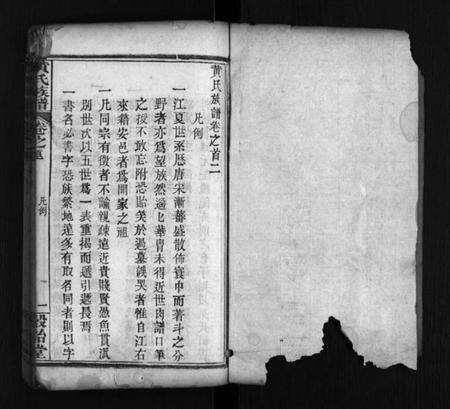 黄氏族譜卷之首二
凡例
一江夏世系歷唐宋漸蕃盛散佈寰中而著斗之分
野者亦爲望族然遥遥華胄未得近世肉譜口筆
之援不敢忘附恐貽笑於過墓誤哭者惟自江右
來籍安邑者爲開家之祖
一凡同宗有徵者不論親疎遠近貴賤賢愚魚貫派
別世次以五世爲一表重揭而遞引遞長焉
一書名必書字恐族繁地遠多有取名同者則以字
黄氏族譜
凡例
一